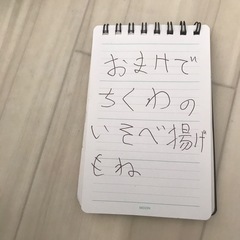 おまけで
ちくわの
いそべ揚げ
もね